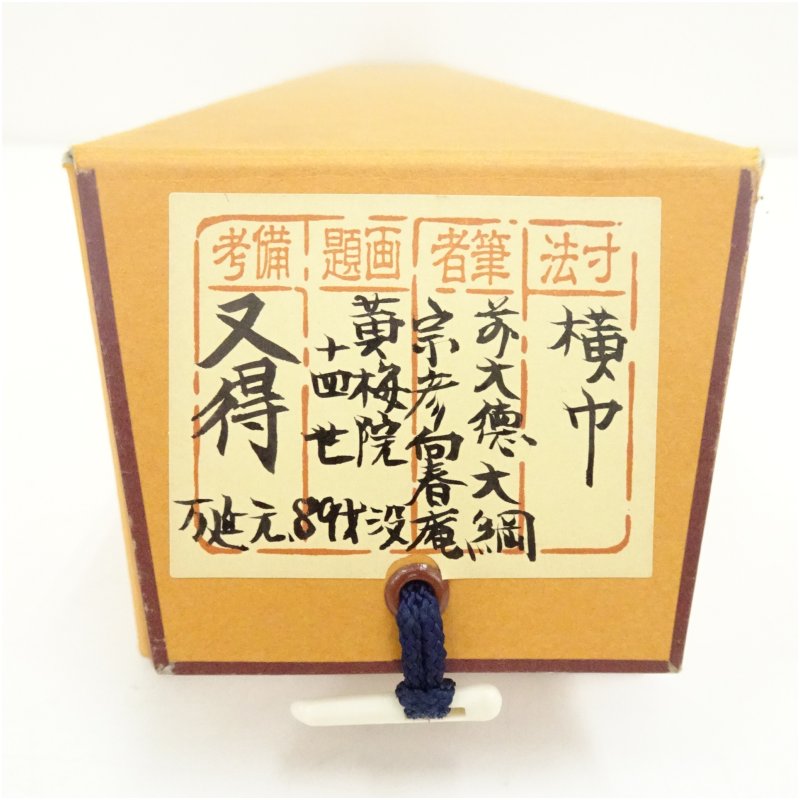 寸法
横巾
筆者
前大徳大綱
宗彦向春庵
画題
黄梅院
十四世
備考
又得
万延元、89才没